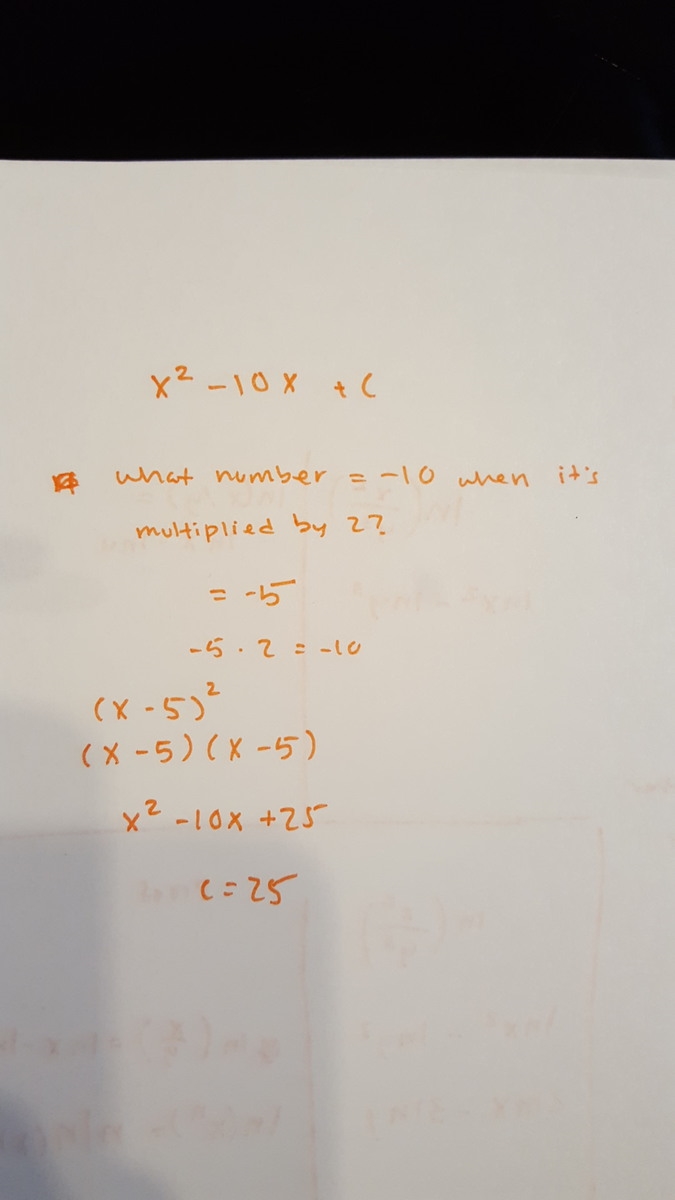 x² - 10x + C
what number = -10 when it's
multiplied by 2?
= -5
-5 · 2 = -10
(x - 5)²
(x - 5)(x - 5)
x² - 10x + 25
C = 25